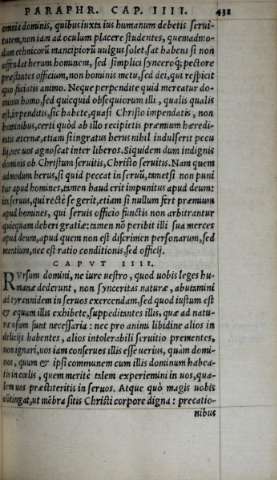 PARAPHR. CAP. IIII. 432
omnia dominis, quibus iuxta ius humanum debetis serui-
tutem, non iam ad oculum placere studentes, quemadmo-
dum ethnicorū mancipiorū uulgus solet, sat habens si non
offendat herum hominem, sed simplici synceroq; pectore
præstantes officium, non hominis metu, sed dei, qui respicit
quo faciatis animo. Neque perpendite quid mereatur do-
minus homo, sed quicquid obsequiorum illi, qualis qualis
est, impenditis, sic habete, quasi Christo impendatis, non
hominibus, certi quòd ab illo recipietis præmium hæredi-
tatis æternæ, etiam si ingratus herus nihil indulserit pecu
lij, nec uos agnoscat inter liberos. Siquidem dum indignis
dominis ob Christum seruitis, Christo seruitis. Nam quem
admodum herus, si quid peccat in seruū, tametsi non puni
tur apud homines, tamen haud erit impunitus apud deum:
ita seruus, qui rectè se gerit, etiam si nullum fert præmium
apud homines, qui seruis officio functis non arbitrantur
quicquam deberi gratiæ: tamen nō peribit illi sua merces
apud deum, apud quem non est discrimen personarum, sed
mentium, nec est ratio conditionis, sed officij.
CAPVT IIII.
RVrsum domini, ne iure uestro, quod uobis leges hu-
manæ dederunt, non synceritas naturæ, abutamini
ad tyrannidem in seruos exercendam, sed quod iustum est
& æquum illis exhibete, suppeditantes illis, quæ ad natu-
ræ usum sunt necessaria: nec pro animi libidine alios in
delicijs habentes, alios intolerabili seruitio prementes,
non ignari, uos iam conseruos illis esse uerius, quàm domi-
nos, quum & ipsi communem cum illis dominum habea-
tis in cœlis, quem meritò talem experiemini in uos, qua-
lem uos præstiteritis in seruos. Atque quò magis uobis
cōtingat, ut mēbra sitis Christi corpore digna: precatio-
nibus